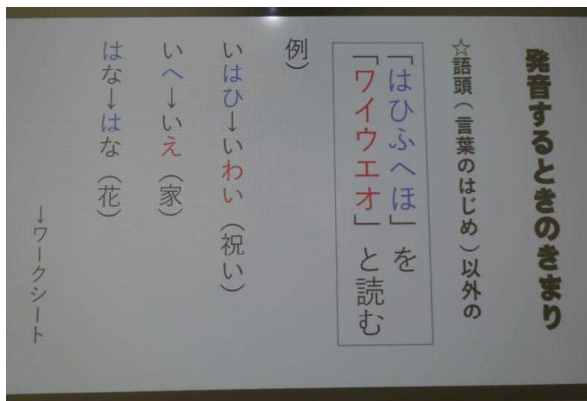 発音するときのきまり
☆語頭（言葉のはじめ）以外の
「はひふへほ」を
「ワイウエオ」と読む
例）
いはひ→いわい（祝い）
いへ→いえ（家）
はな→はな（花）
→ワークシート